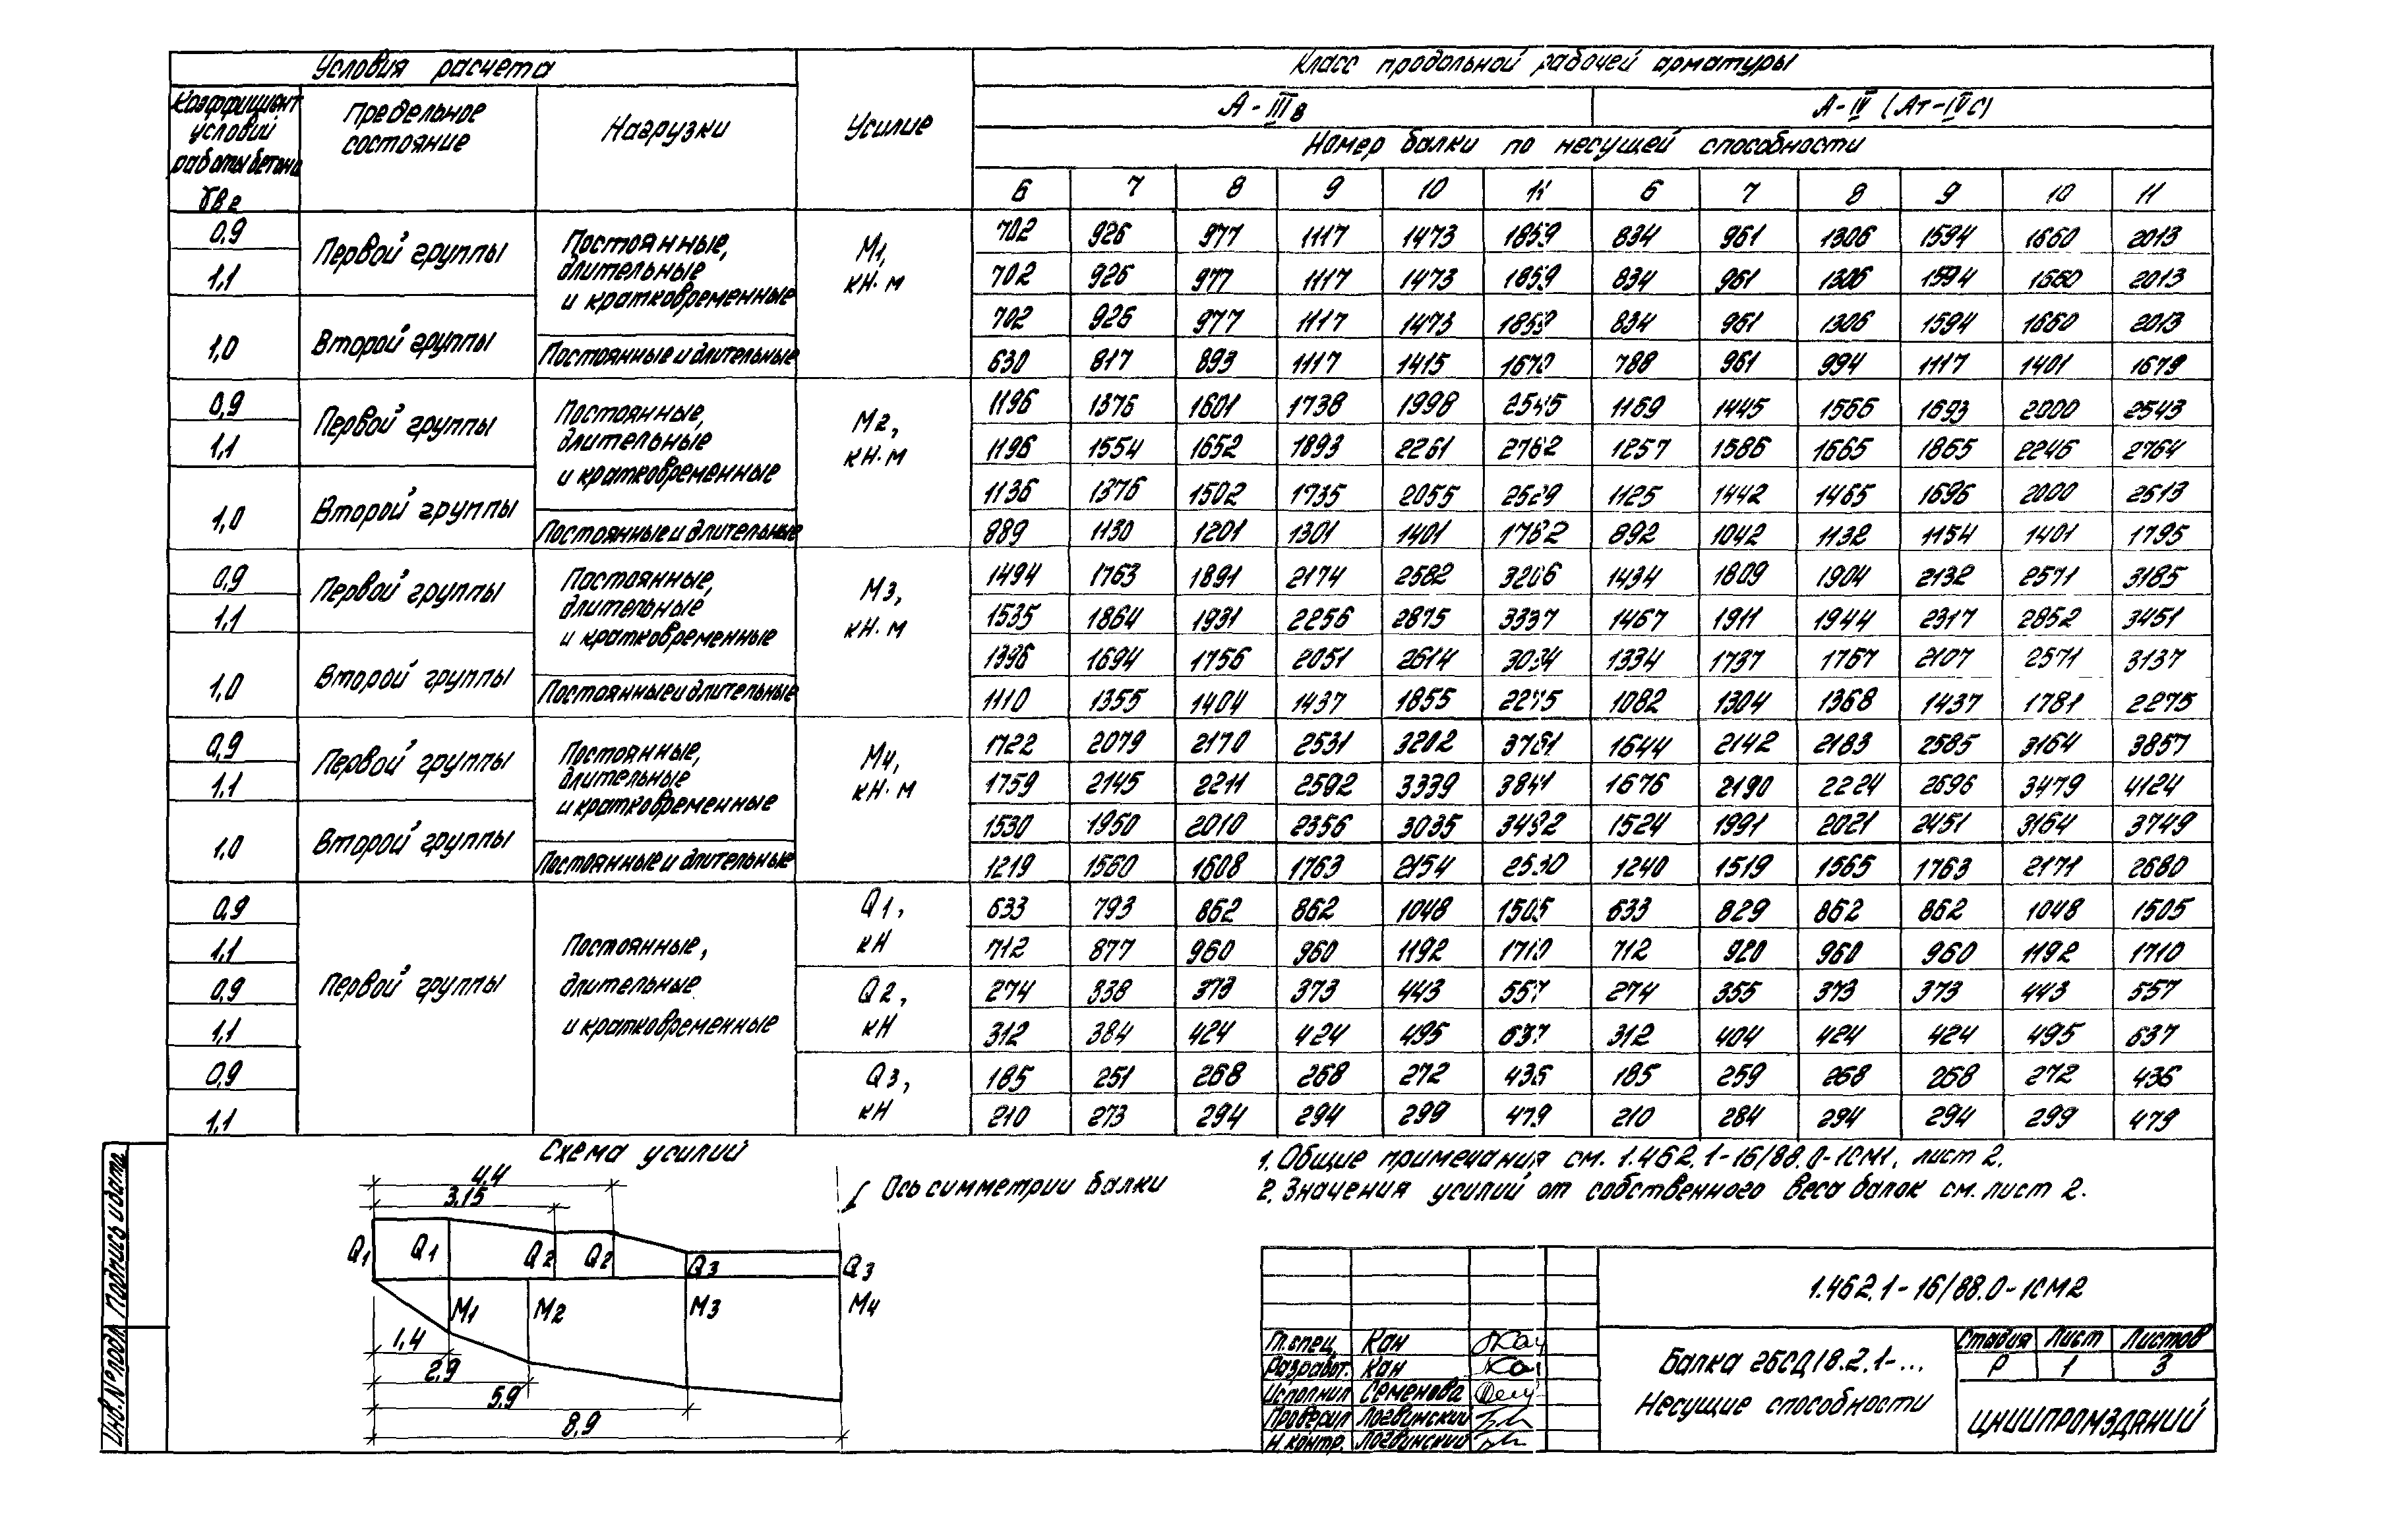 Условия расчета
Усилие
Класс продольной рабочей арматуры
Коэффициент условий работы бетона γв2
Предельное состояние
Нагрузки
А-IIIв
А-IV (Ат-IVС)
Номер балки по несущей способности
6 7 8 9 10 11 6 7 8 9 10 11
0,9 Первой группы Постоянные, длительные и кратковременные М1, кН·м 702 926 977 1117 1473 1859 834 961 1306 1594 1660 2013
1,1 702 926 977 1117 1473 1859 834 961 1306 1594 1660 2013
1,0 Второй группы 702 926 977 1117 1473 1859 834 961 1306 1594 1660 2013
Постоянные и длительные 630 817 893 1117 1415 788 961 994 1117 1401 1679
0,9 Первой группы Постоянные, длительные и кратковременные М2, кН·м 1196 1376 1601 1738 1998 1169 1445 1566 1693 2000 2543
1,1 1196 1554 1652 1893 2261 2762 1257 1586 1665 1865 2246 2764
1,0 Второй группы 1136 1376 1502 1735 2055 2529 1125 1442 1465 1696 2000 2513
Постоянные и длительные 889 1130 1201 1301 1401 1782 892 1042 1132 1154 1401 1795
0,9 Первой группы Постоянные, длительные и кратковременные М3, кН·м 1494 1763 1891 2174 2582 3206 1434 1809 1904 2132 2571 3185
1,1 1535 1864 1931 2256 2875 3337 1467 1911 1944 2317 2852 3451
1,0 Второй группы 1396 1694 1756 2051 2614 3034 1334 1737 1767 2107 2571 3137
Постоянные и длительные 1110 1355 1404 1437 1855 1082 1304 1368 1437 1781 2275
0,9 Первой группы Постоянные, длительные и кратковременные М4, кН·м 1722 2079 2170 2531 3202 3761 1644 2142 2183 2585 3164 3857
1,1 1759 2145 2211 2592 3339 3841 1676 2190 2224 2696 3479 4124
1,0 Второй группы 1530 1950 2010 2356 3035 3492 1524 1991 2021 2451 3164 3749
Постоянные и длительные 1219 1560 1608 1763 2154 2530 1240 1519 1565 1763 2171 2680
0,9 Первой группы Постоянные, длительные и кратковременные Q1, кН 633 793 862 862 1048 1505 633 829 862 862 1048 1505
1,1 712 877 960 960 1192 1710 712 920 960 960 1192 1710
0,9 Q2, кН 274 338 373 373 443 557 274 355 373 373 443 557
1,1 312 384 424 424 495 637 312 404 424 424 495 637
0,9 Q3, кН 185 251 268 268 272 436 185 259 268 268 272 436
1,1 210 273 294 294 299 479 210 284 294 294 299 479
Схема усилий
4,4
3,15
Ось симметрии балки
Q1 Q1 Q2 Q2 Q3 Q3
М1 М2 М3 М4
1,4
2,9
5,9
8,9
1. Общие примечания см. 1.462.1-16/88.0-1СМ1, лист 2.
2. Значения усилий от собственного веса балок см. лист 2.
1.462.1-16/88.0-1СМ2
Гл.спец. Кан
Разработ. Кан
Исполнил Семенова
Проверил Логвинский
Н.контр. Логвинский
Балка 2БСД18.2.1-...
Несущие способности
Стадия Лист Листов
Р 1 3
ЦНИИПРОМЗДАНИЙ
Инв.№подл. Подпись и дата